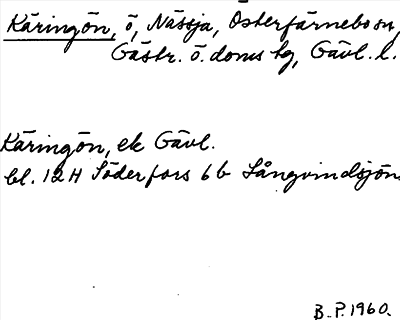 Käringön, ö, Nässja, Österfärnebo sn,
Gästr. ö. doms tg, Gävl. l.
Käringön, ek Gävl.
bl. 12H Söderfors 6b Långvindsjön
B.P. 1960.